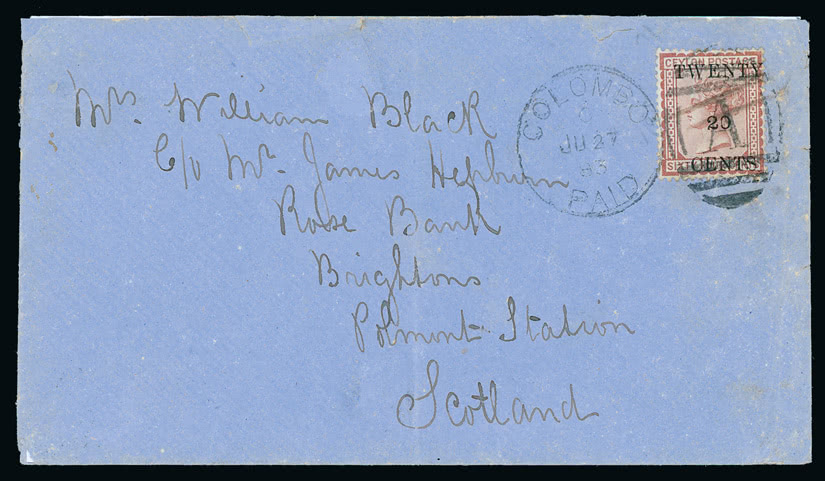 Mrs William Black
C/o Mr. James Hepburn
Rose Bank
Brightons
Polmont Station
Scotland
COLOMBO
JU 27
PAID
CEYLON POSTAGE
TWENTY
20
CENTS
A